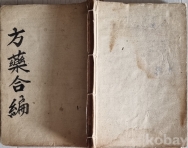 方藥合編
kobay